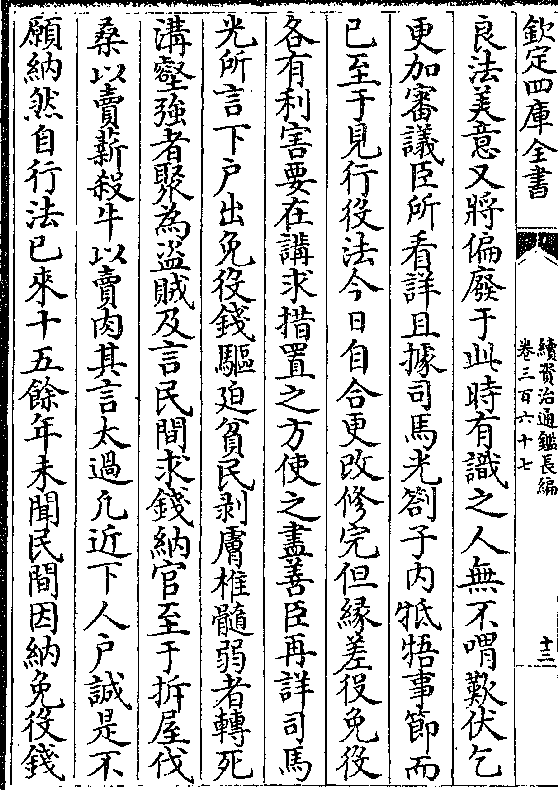 欽定四庫全書
續資治通鑑長編
卷三百六十七
十三
良法美意又將偏廢于此時有識之人無不喟歎伏乞
更加審議臣所看詳且據司馬光劄子内牴牾事節而
已至于見行役法今日自合更改修完但緣差役免役
各有利害要在講求措置之方使之盡善臣再詳司馬
光所言下户出免役錢驅迫貧民剥膚椎髓弱者轉死
溝壑強者聚為盜賊及言民間求錢納官至于拆屋伐
桑以賣薪殺牛以賣肉其言太過凡近下人户誠是不
願納然自行法已來十五餘年未聞民間因納免役錢